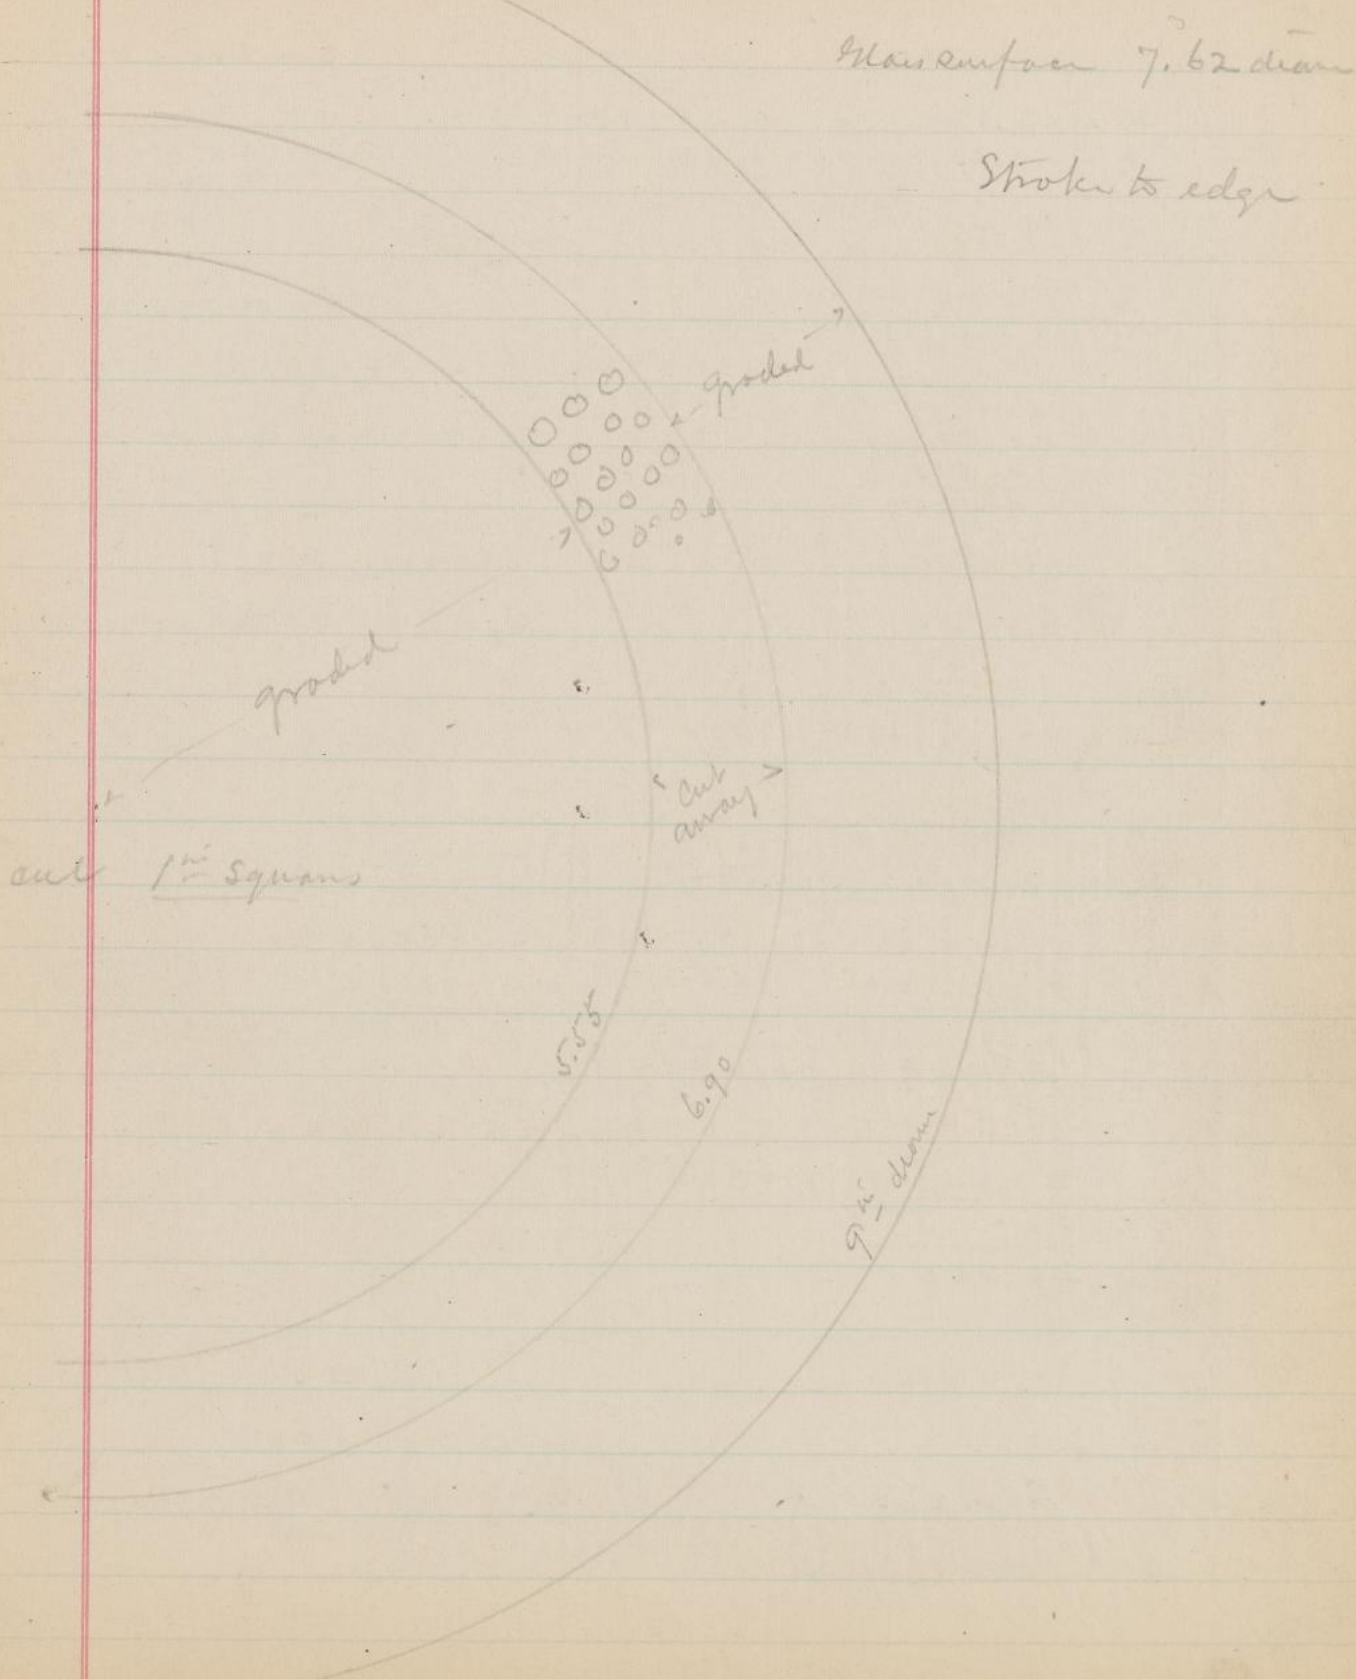 Glass surface 7.62 diam
Stroke to edge
graded
graded
cut
away
cut 1 in squares
5.55
6.90
9 in diam